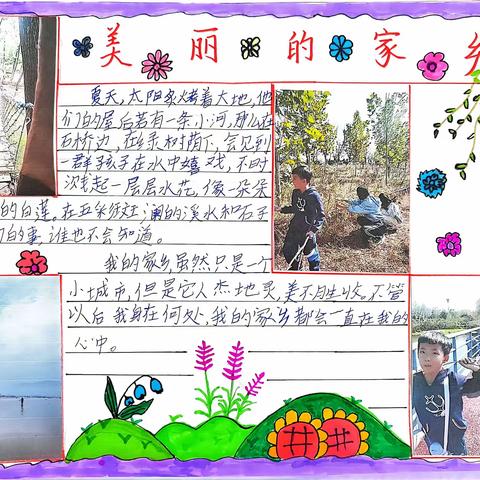 美丽的家乡
夏天,太阳象烤着大地,他
们的屋后若有一条小河,那么在
石桥边,在绿树荫下,会见到
一群孩子在水中嬉戏,不时
溅起一层层水花,像一朵朵
的白莲。在五彩斑斓的溪水和石子
的事,谁也不会知道。
我的家乡虽然只是一个
小城市,但是它人杰地灵,美不胜收。不管
以后我身在何处,我的家乡都会一直在我的
心中。